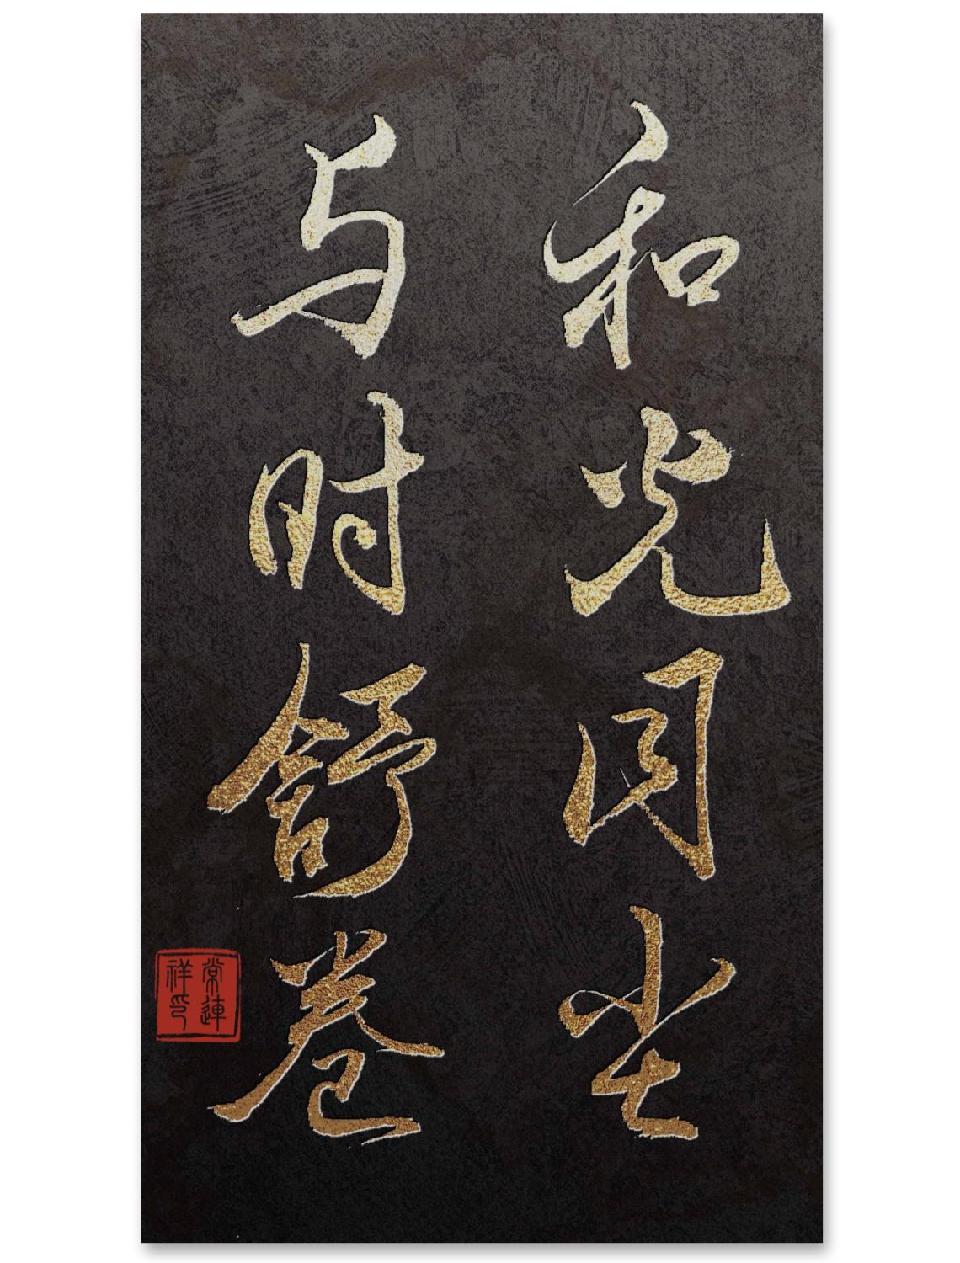 和光同尘
与时舒卷
常连祥印